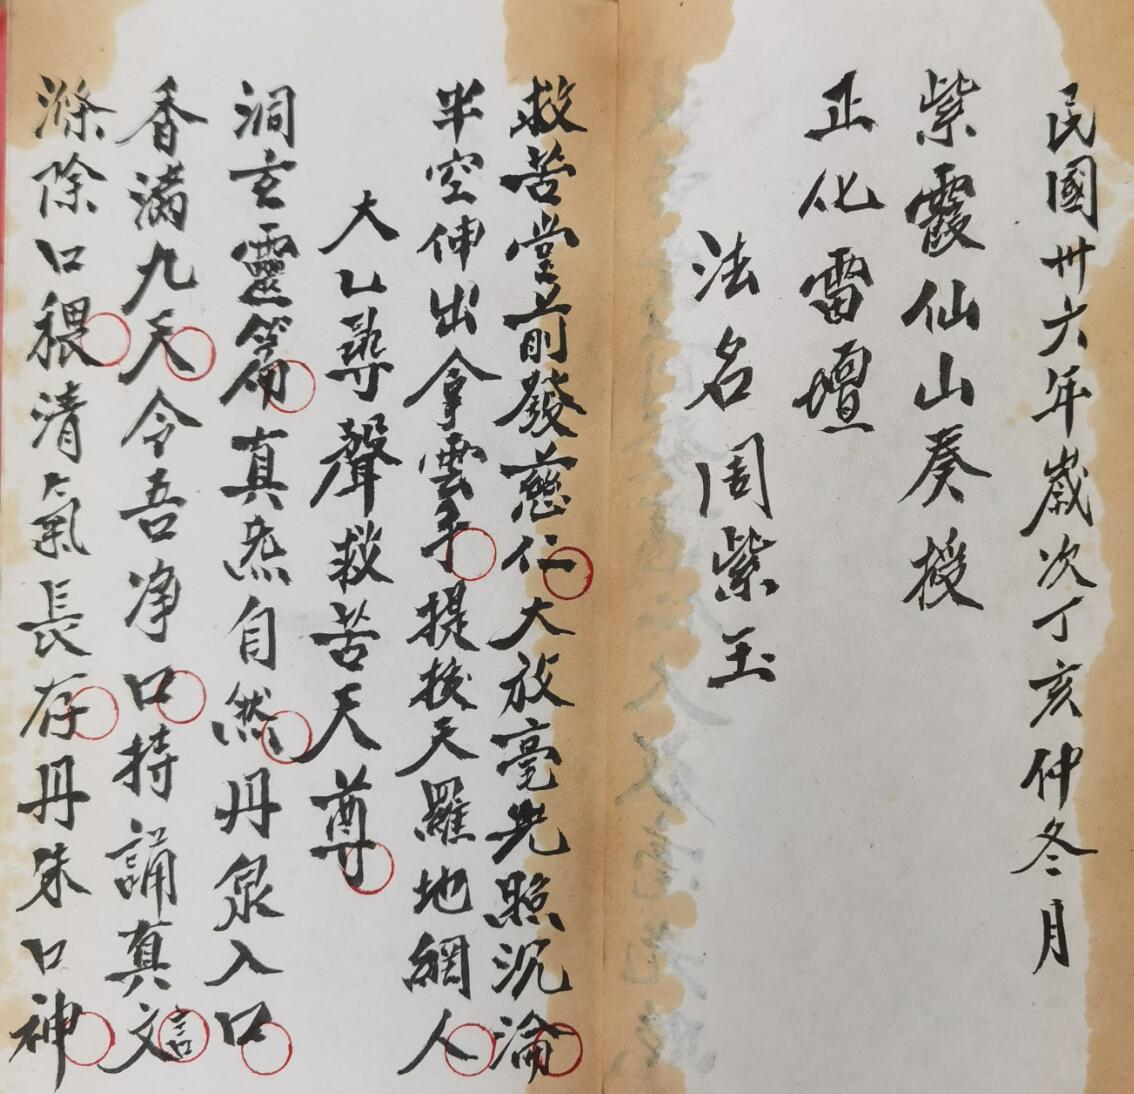 民國卅六年歲次丁亥仲冬月
紫霞仙山奏授
正化雷壇
法名周紫玉
救苦堂前發慈仁大放毫光照沉淪
半空伸出拿雲手提拔天羅地網人
大乙尋聲救苦天尊
洞玄靈篇真炁自然丹泉入口
香滿九天令吾净口持誦真文言
滌除口穢清氣長存丹朱口神